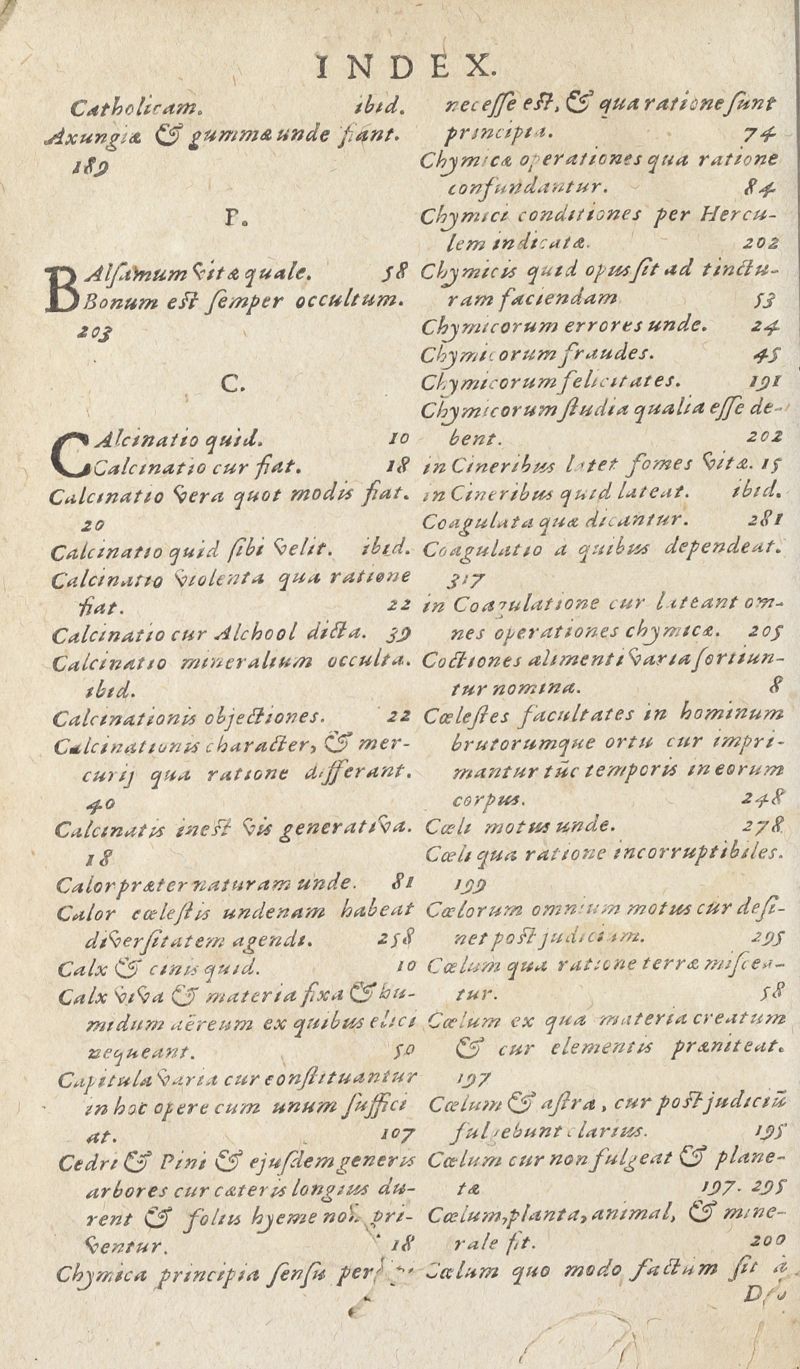 INDEX.
Catholicam. ibid.
Axungiæ & gummæ unde fiant.
189
B.
BAlſamum vitæ quale. 58
Bonum eſt ſemper occultum.
203
C.
CAlcinatio quid. 10
Calcinatio cur fiat. 18
Calcinatio vera quot modis fiat.
20
Calcinatio quid ſibi velit. ibid.
Calcinatio violenta qua ratione
fiat. 22
Calcinatio cur Alchool dicta. 39
Calcinatio mineralium occulta.
ibid.
Calcinationis objectiones. 22
Calcinationis character, & mer-
curij qua ratione differant.
40
Calcinatis ineſt vis generativa.
18
Calor præter naturam unde. 81
Calor cœleſtis undenam habeat
diverſitatem agendi. 258
Calx & cinis quid. 10
Calx viva & materia fixa & hu-
midum aëreum ex quibus elici
nequeant. 50
Capitula varia cur conſtituantur
in hoc opere cum unum ſuffici
at. 107
Cedri & Pini & ejuſdem generis
arbores cur cæteris longius du-
rent & foliis hyeme non pri-
ventur. 18
Chymica principia ſenſu
neceſſe eſt, & qua ratione ſunt
principia. 74
Chymicæ operationes qua ratione
confundantur. 84
Chymici conditiones per Hercu-
lem indicatæ. 202
Chymicis quid opus ſit ad tinctu-
ram faciendam 53
Chymicorum errores unde. 24
Chymicorum fraudes. 45
Chymicorum felicitates. 191
Chymicorum ſtudia qualia eſſe de-
bent. 202
in Cineribus latet fomes vitæ. 15
in Cineribus quid lateat. ibid.
Coagulata quæ dicantur. 281
Coagulatio a quibus dependeat.
317
in Coagulatione cur lateant om-
nes operationes chymicæ. 205
Coctiones alimenti varia ſortiun-
tur nomina. 8
Cœleſtes facultates in hominum
brutorumque ortu cur impri-
mantur tũc temporis in eorum
corpus. 248
Cœli motus unde. 278
Cœli qua ratione incorruptibiles.
199
Cœlorum omnium motus cur deſi-
net poſt judicium. 295
Cœlum qua ratione terræ miſcea-
tur. 58
Cœlum ex qua materia creatum
& cur elementis præniteat.
197
Cœlum & aſtra, cur poſt judiciũ
fulgebunt clarius. 195
Cœlum cur non fulgeat & plane-
tæ 197. 295
Cœlum, planta, animal, & mine-
rale fit. 200
Cœlum quo modo factum ſit à
Deo